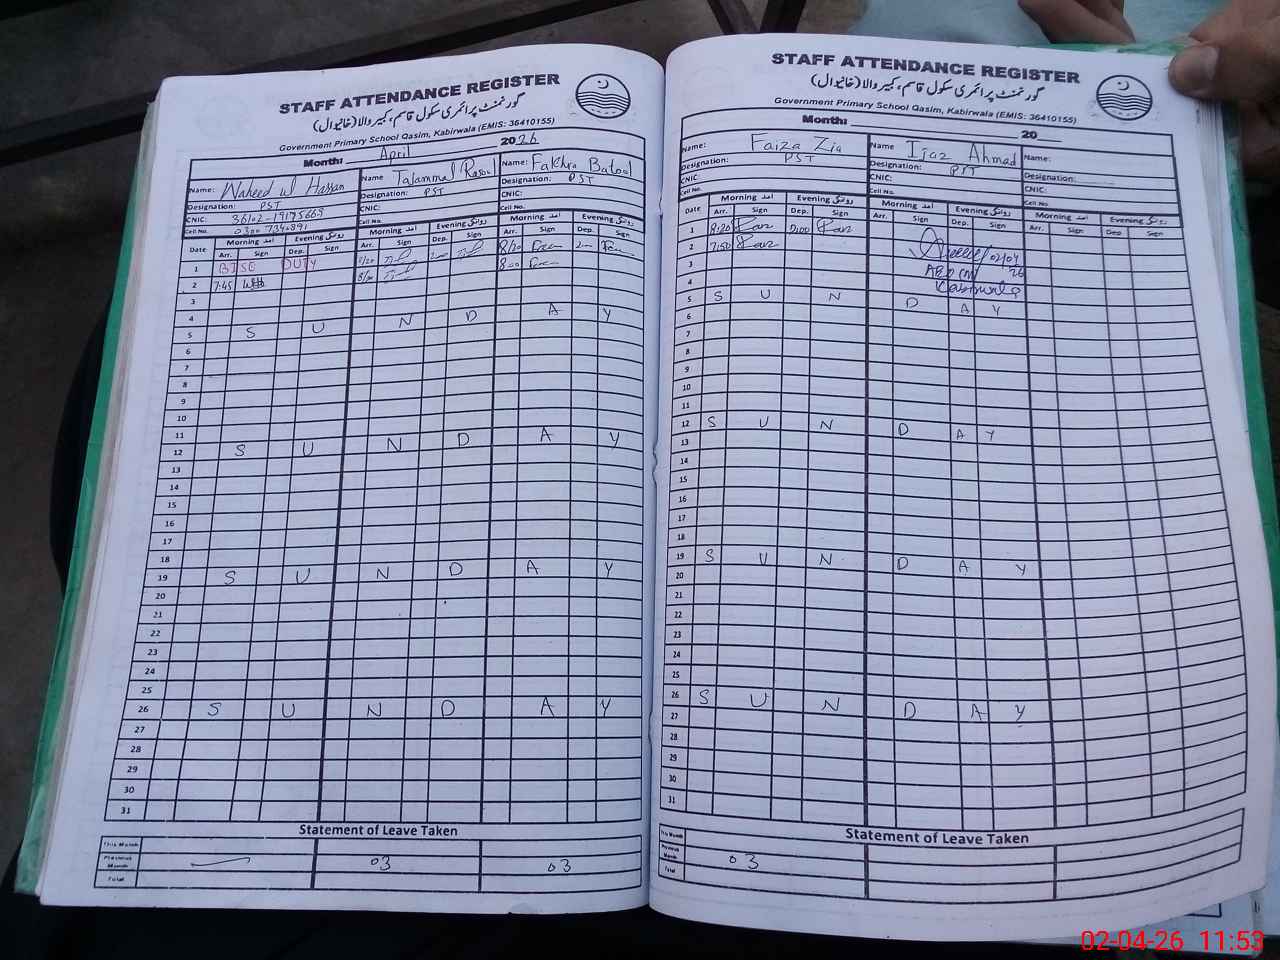 STAFF ATTENDANCE REGISTER
گورنمنٹ پرائمری سکول قاسم، کبیروالا (خانیوال)
Government Primary School Qasim, Kabirwala (EMIS: 36410155)
Month: April 2026
Name: Waheed ul Hassan Name Tajammal Rasool Name: Fakhra Batool
Designation: PST Designation: PST Designation: PST
CNIC: CNIC: CNIC:
Cell No. Cell No. Cell No.
Date Morning آمد Evening روانگی Morning آمد Evening روانگی Morning آمد Evening روانگی
Arr. Sign Dep. Sign Arr. Sign Dep. Sign Arr. Sign Dep. Sign
1 BISE DUTY 8/20
2 7:45 8=00
3
4
5 S U N D A Y
6
7
8
9
10
11
12 S U N D A Y
13
14
15
16
17
18
19 S U N D A Y
20
21
22
23
24
25
26 S U N D A Y
27
28
29
30
31
Statement of Leave Taken
This Month
Previous Month 03 03
Total
STAFF ATTENDANCE REGISTER
گورنمنٹ پرائمری سکول قاسم، کبیروالا (خانیوال)
Government Primary School Qasim, Kabirwala (EMIS: 36410155)
Month: 20
Name: Faiza Zia Name Ijaz Ahmad Name:
Designation: PST Designation: PST Designation:
CNIC: CNIC: CNIC:
Cell No. Cell No. Cell No.
Date Morning آمد Evening روانگی Morning آمد Evening روانگی Morning آمد Evening روانگی
Arr. Sign Dep. Sign Arr. Sign Dep. Sign Arr. Sign Dep. Sign
1 8:20 2:00
2 7:50 02/04
3 26
4 Kabirwala
5 S U N D A Y
6
7
8
9
10
11
12 S U N D A Y
13
14
15
16
17
18
19 S U N D A Y
20
21
22
23
24
25
26 S U N D A Y
27
28
29
30
31
Statement of Leave Taken
This Month
Previous Month 03
Total
02-04-26 11:53